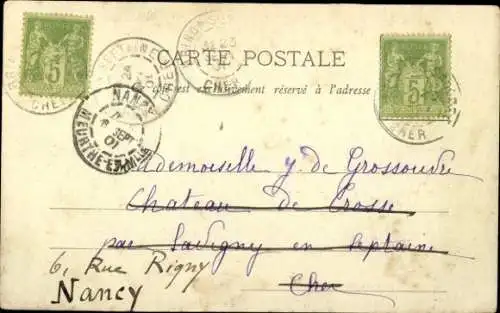 CARTE POSTALE
est exclusivement réservé à l'adresse
5
5
CHER
CHER
CHER
NANCY
SEPT
01
MEURTHE-ET-MLLE
Mademoiselle y. de Grossouvre
Chateau de Crosse
par Savigny en Septaine
Cher
6, Rue Rigny
Nancy